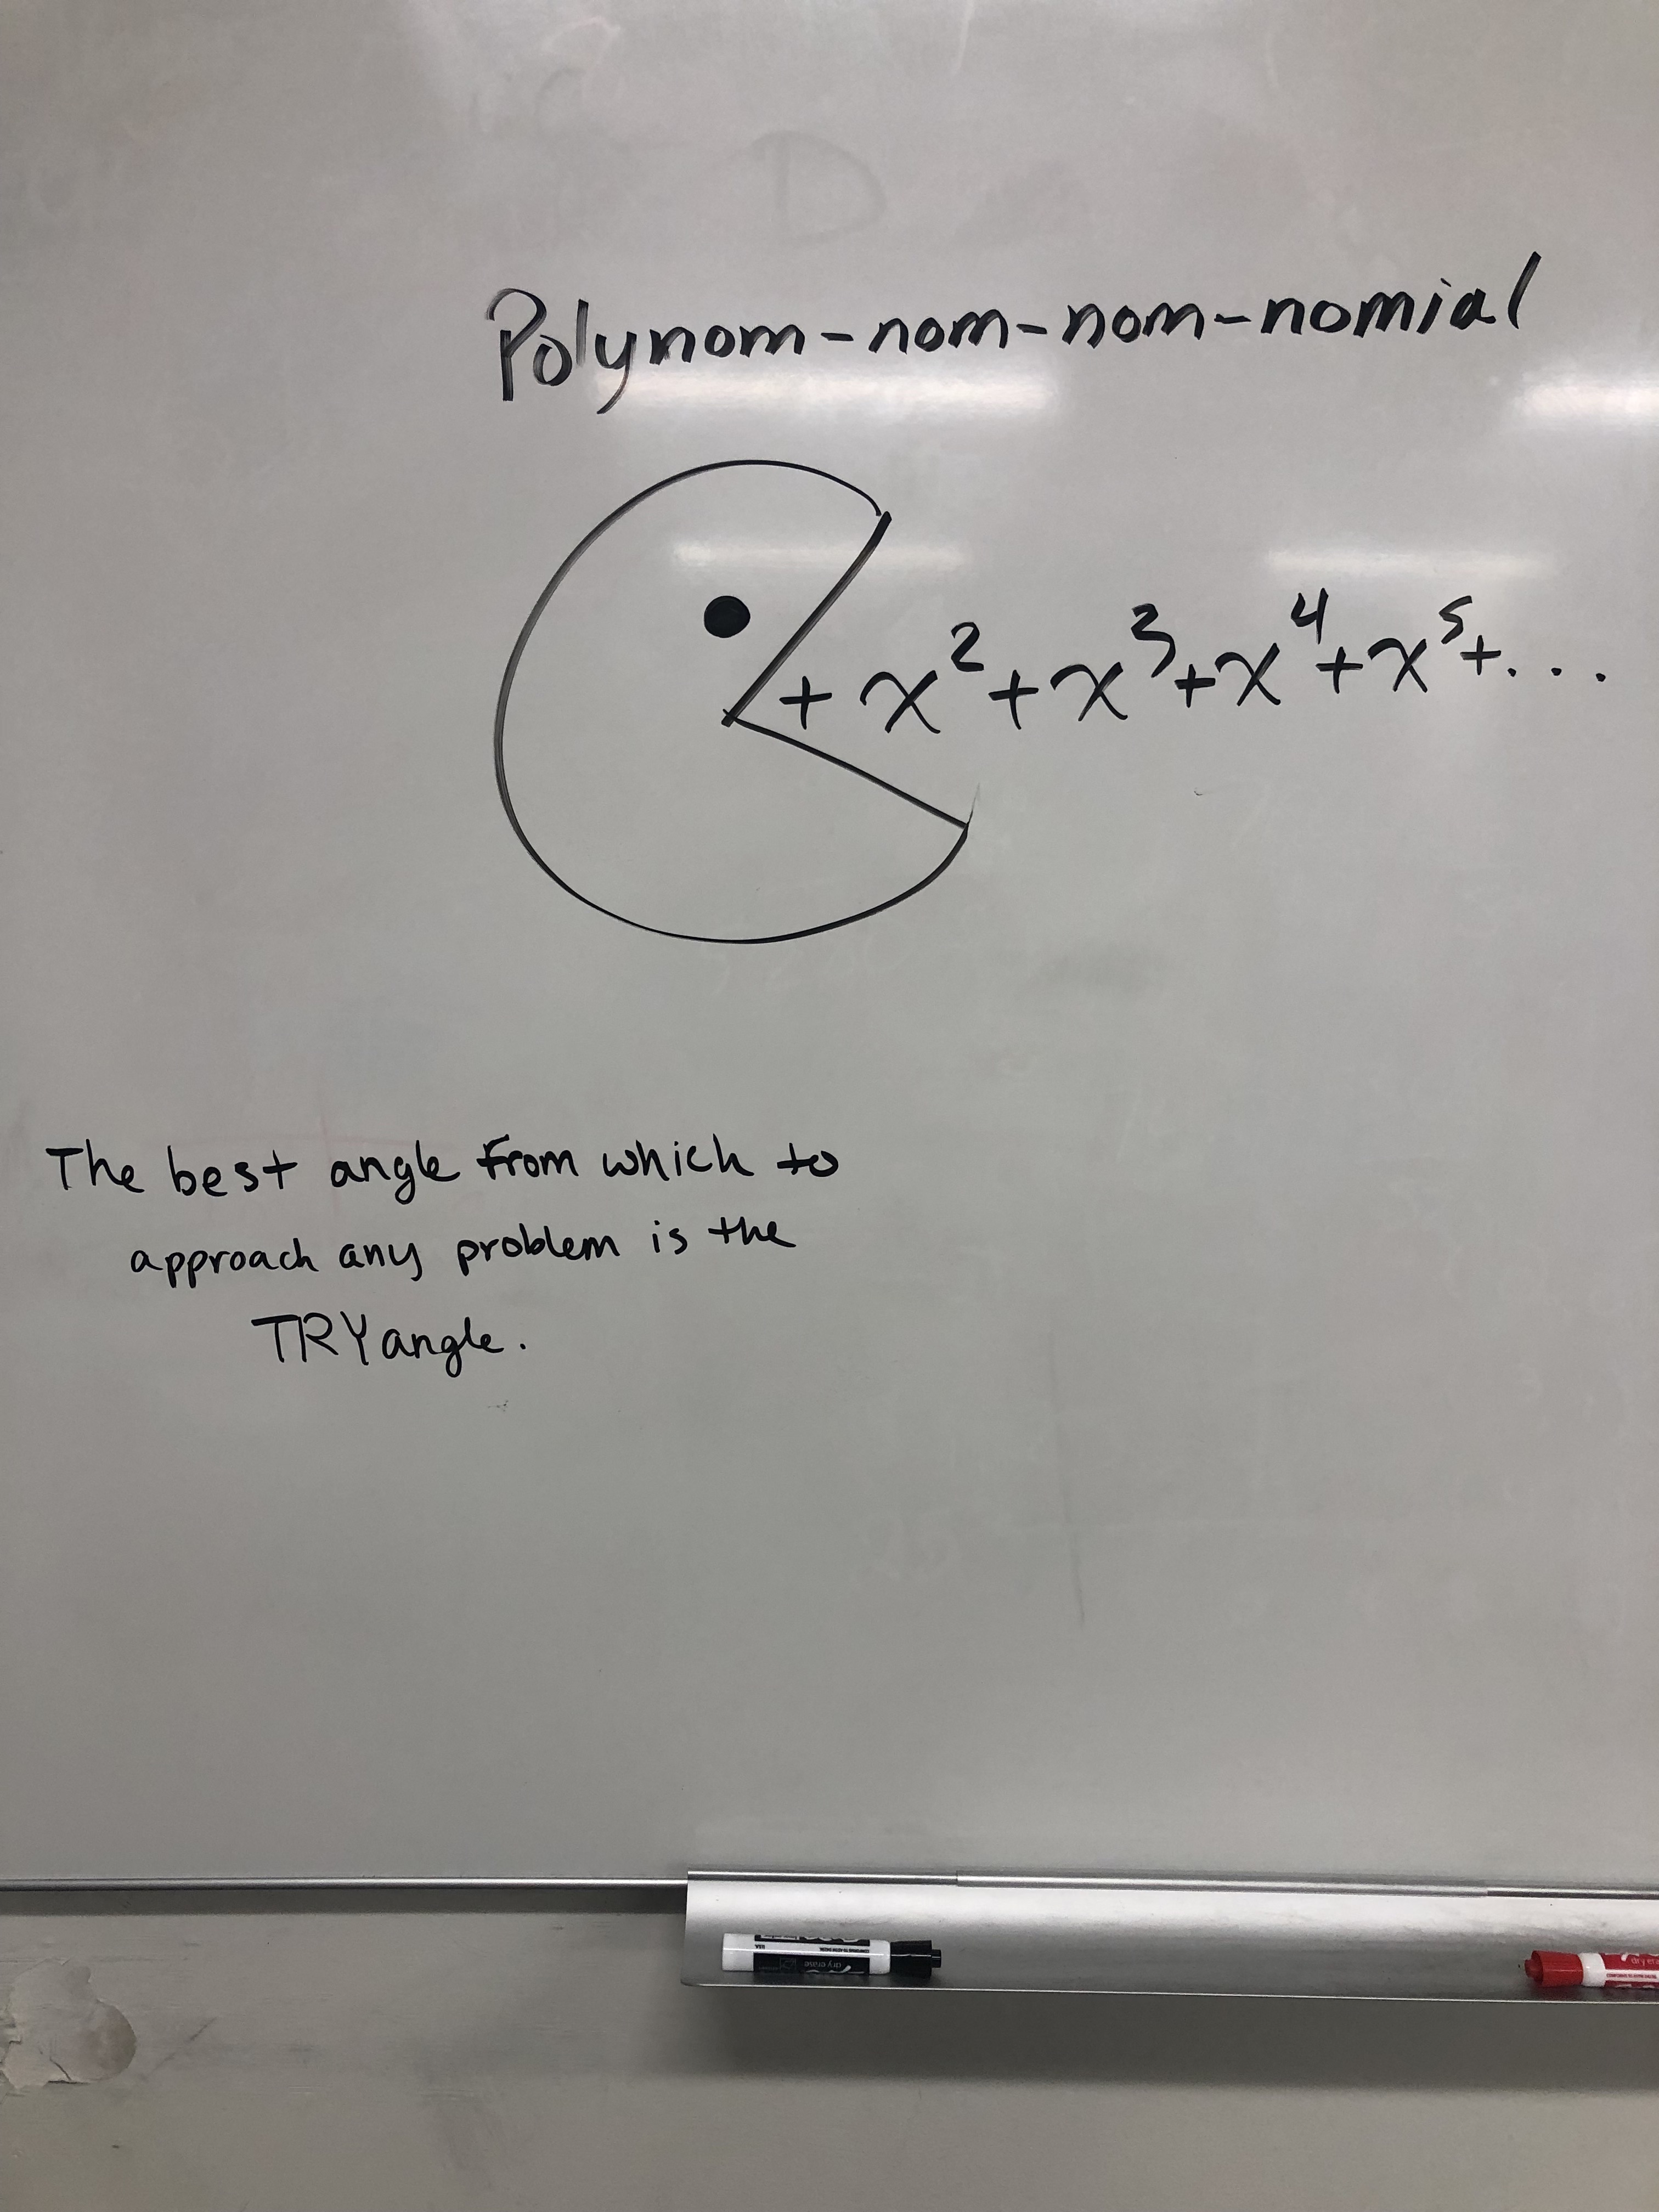 Polynom-nom-nom-nomial
+ x² + x³ + x⁴ + x⁵ + ...
The best angle from which to
approach any problem is the
TRYangle.
dry erase